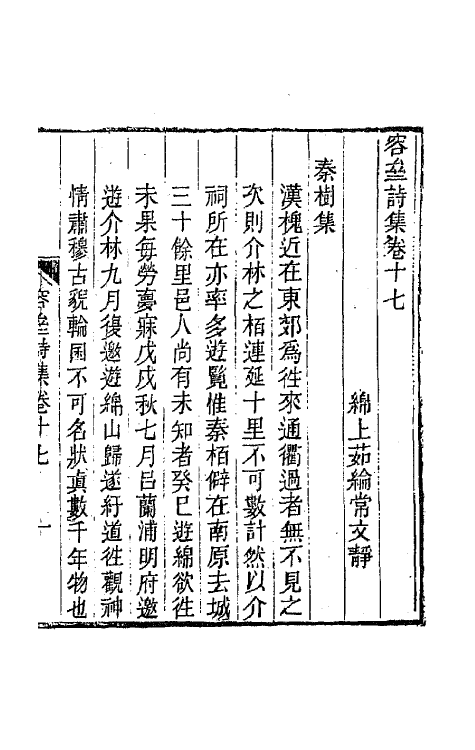 容壘詩集卷十七
綿上茹綸常文靜
秦樹集
漢槐近在東郊爲徃來通衢過者無不見之
次則介林之栢連延十里不可數計然以介
祠所在亦率多遊覧惟秦栢僻在南原去城
三十餘里邑人尚有未知者癸巳遊綿欲徃
未果每勞夢寐戊戌秋七月呂蘭浦明府邀
遊介林九月復邀遊綿山歸遂紆道徃觀神
情肅穆古貌輪囷不可名狀真數千年物也
容壘詩集卷十七
一